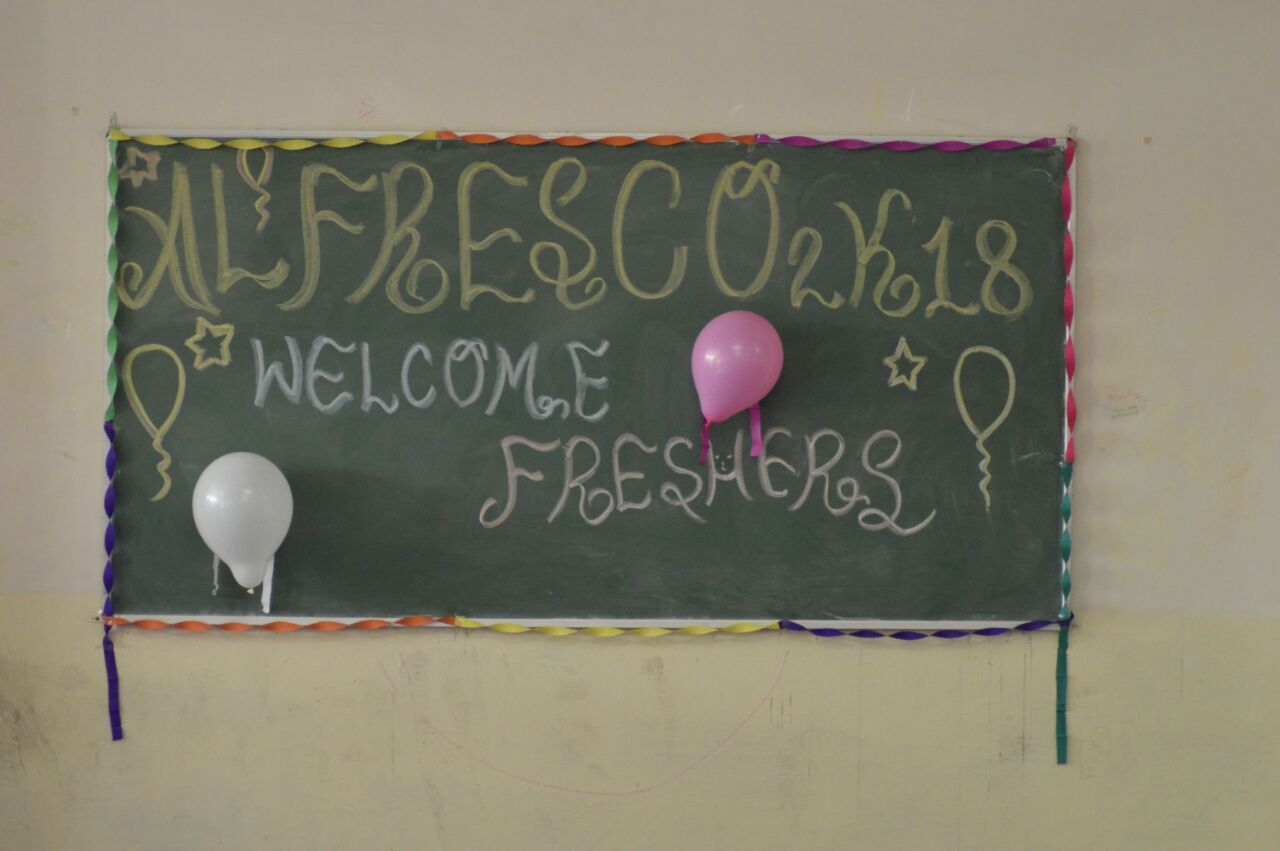 ALFRESCO 2K18
WELCOME
FRESHERS